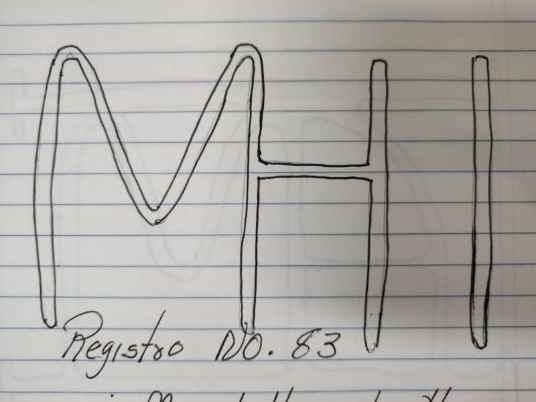 MHI
Registro No. 83